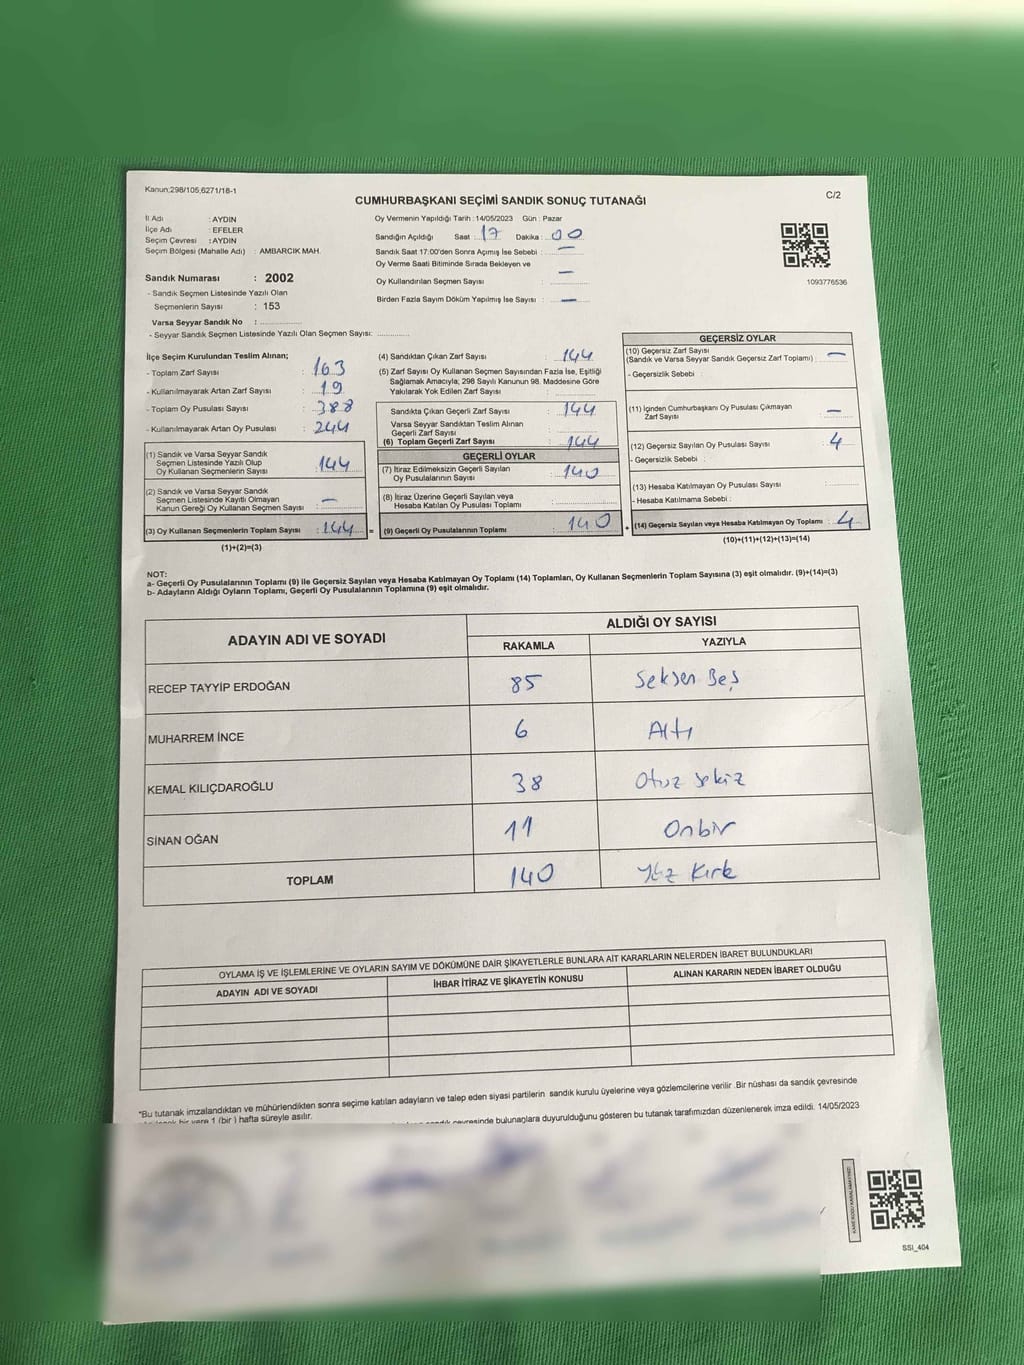 Kanun;298/105;6271/18-1
C/2
CUMHURBAŞKANI SEÇİMİ SANDIK SONUÇ TUTANAĞI
İl Adı : AYDIN
İlçe Adı : EFELER
Seçim Çevresi : AYDIN
Seçim Bölgesi (Mahalle Adı) : AMBARCIK MAH.
Sandık Numarası : 2002
- Sandık Seçmen Listesinde Yazılı Olan
Seçmenlerin Sayısı : 153
Varsa Seyyar Sandık No :
- Seyyar Sandık Seçmen Listesinde Yazılı Olan Seçmen Sayısı:
Oy Vermenin Yapıldığı Tarih : 14/05/2023 Gün : Pazar
Sandığın Açıldığı Saat : 17 Dakika : 00
Sandık Saat 17:00'den Sonra Açımış İse Sebebi : —
Oy Verme Saati Bitiminde Sırada Bekleyen ve
Oy Kullandırılan Seçmen Sayısı : —
Birden Fazla Sayım Döküm Yapılmış İse Sayısı : —
1093776536
İlçe Seçim Kurulundan Teslim Alınan;
- Toplam Zarf Sayısı : 163
- Kullanılmayarak Artan Zarf Sayısı : 19
- Toplam Oy Pusulası Sayısı : 388
- Kullanılmayarak Artan Oy Pusulası : 244
(1) Sandık ve Varsa Seyyar Sandık
Seçmen Listesinde Yazılı Olup
Oy Kullanan Seçmenlerin Sayısı : 144
(2) Sandık ve Varsa Seyyar Sandık
Seçmen Listesinde Kayıtlı Olmayan
Kanun Gereği Oy Kullanan Seçmen Sayısı : —
(3) Oy Kullanan Seçmenlerin Toplam Sayısı : 144 =
(1)+(2)=(3)
(4) Sandıktan Çıkan Zarf Sayısı : 144
(5) Zarf Sayısı Oy Kullanan Seçmen Sayısından Fazla İse, Eşitliği
Sağlamak Amacıyla; 298 Sayılı Kanunun 98. Maddesine Göre
Yakılarak Yok Edilen Zarf Sayısı :
Sandıkta Çıkan Geçerli Zarf Sayısı : 144
Varsa Seyyar Sandıktan Teslim Alınan
Geçerli Zarf Sayısı :
(6) Toplam Geçerli Zarf Sayısı : 144
GEÇERLİ OYLAR
(7) İtiraz Edilmeksizin Geçerli Sayılan
Oy Pusulalarının Sayısı : 140
(8) İtiraz Üzerine Geçerli Sayılan veya
Hesaba Katılan Oy Pusulası Toplamı :
(9) Geçerli Oy Pusulalarının Toplamı : 140 +
GEÇERSİZ OYLAR
(10) Geçersiz Zarf Sayısı
(Sandık ve Varsa Seyyar Sandık Geçersiz Zarf Toplamı) : —
- Geçersizlik Sebebi :
(11) İçinden Cumhurbaşkanı Oy Pusulası Çıkmayan
Zarf Sayısı : —
(12) Geçersiz Sayılan Oy Pusulası Sayısı : 4
- Geçersizlik Sebebi :
(13) Hesaba Katılmayan Oy Pusulası Sayısı :
- Hesaba Katılmama Sebebi :
(14) Geçersiz Sayılan veya Hesaba Katılmayan Oy Toplamı : 4
(10)+(11)+(12)+(13)=(14)
NOT:
a- Geçerli Oy Pusulalarının Toplamı (9) ile Geçersiz Sayılan veya Hesaba Katılmayan Oy Toplamı (14) Toplamları, Oy Kullanan Seçmenlerin Toplam Sayısına (3) eşit olmalıdır. (9)+(14)=(3)
b- Adayların Aldığı Oyların Toplamı, Geçerli Oy Pusulalarının Toplamına (9) eşit olmalıdır.
ADAYIN ADI VE SOYADI ALDIĞI OY SAYISI
RAKAMLA YAZIYLA
RECEP TAYYIP ERDOĞAN 85 Seksen Beş
MUHARREM İNCE 6 Altı
KEMAL KILIÇDAROĞLU 38 Otuz sekiz
SİNAN OĞAN 11 Onbir
TOPLAM 140 Yüz Kırk
OYLAMA İŞ VE İŞLEMLERİNE VE OYLARIN SAYIM VE DÖKÜMÜNE DAİR ŞİKAYETLERLE BUNLARA AİT KARARLARIN NELERDEN İBARET BULUNDUKLARI
ADAYIN ADI VE SOYADI İHBAR İTİRAZ VE ŞİKAYETİN KONUSU ALINAN KARARIN NEDEN İBARET OLDUĞU
*Bu tutanak imzalandıktan ve mühürlendikten sonra seçime katılan adayların ve talep eden siyasi partilerin sandık kurulu üyelerine veya gözlemcilerine verilir .Bir nüshası da sandık çevresinde
bir yere 1 (bir ) hafta süreyle asılır.
çevresinde bulunanlara duyurulduğunu gösteren bu tutanak tarafımızdan düzenlenerek imza edildi. 14/05/2023
SSI_404